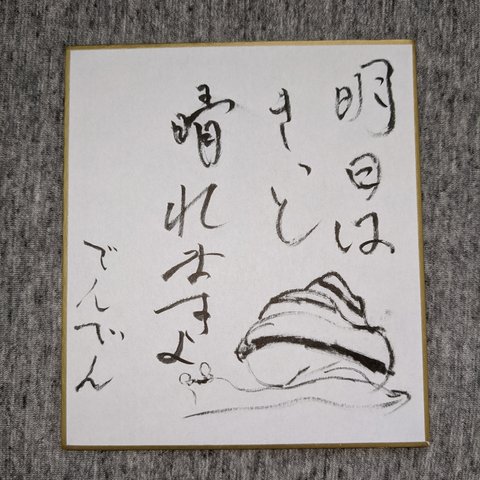 明日は
きっと
晴れますよ
でんでん